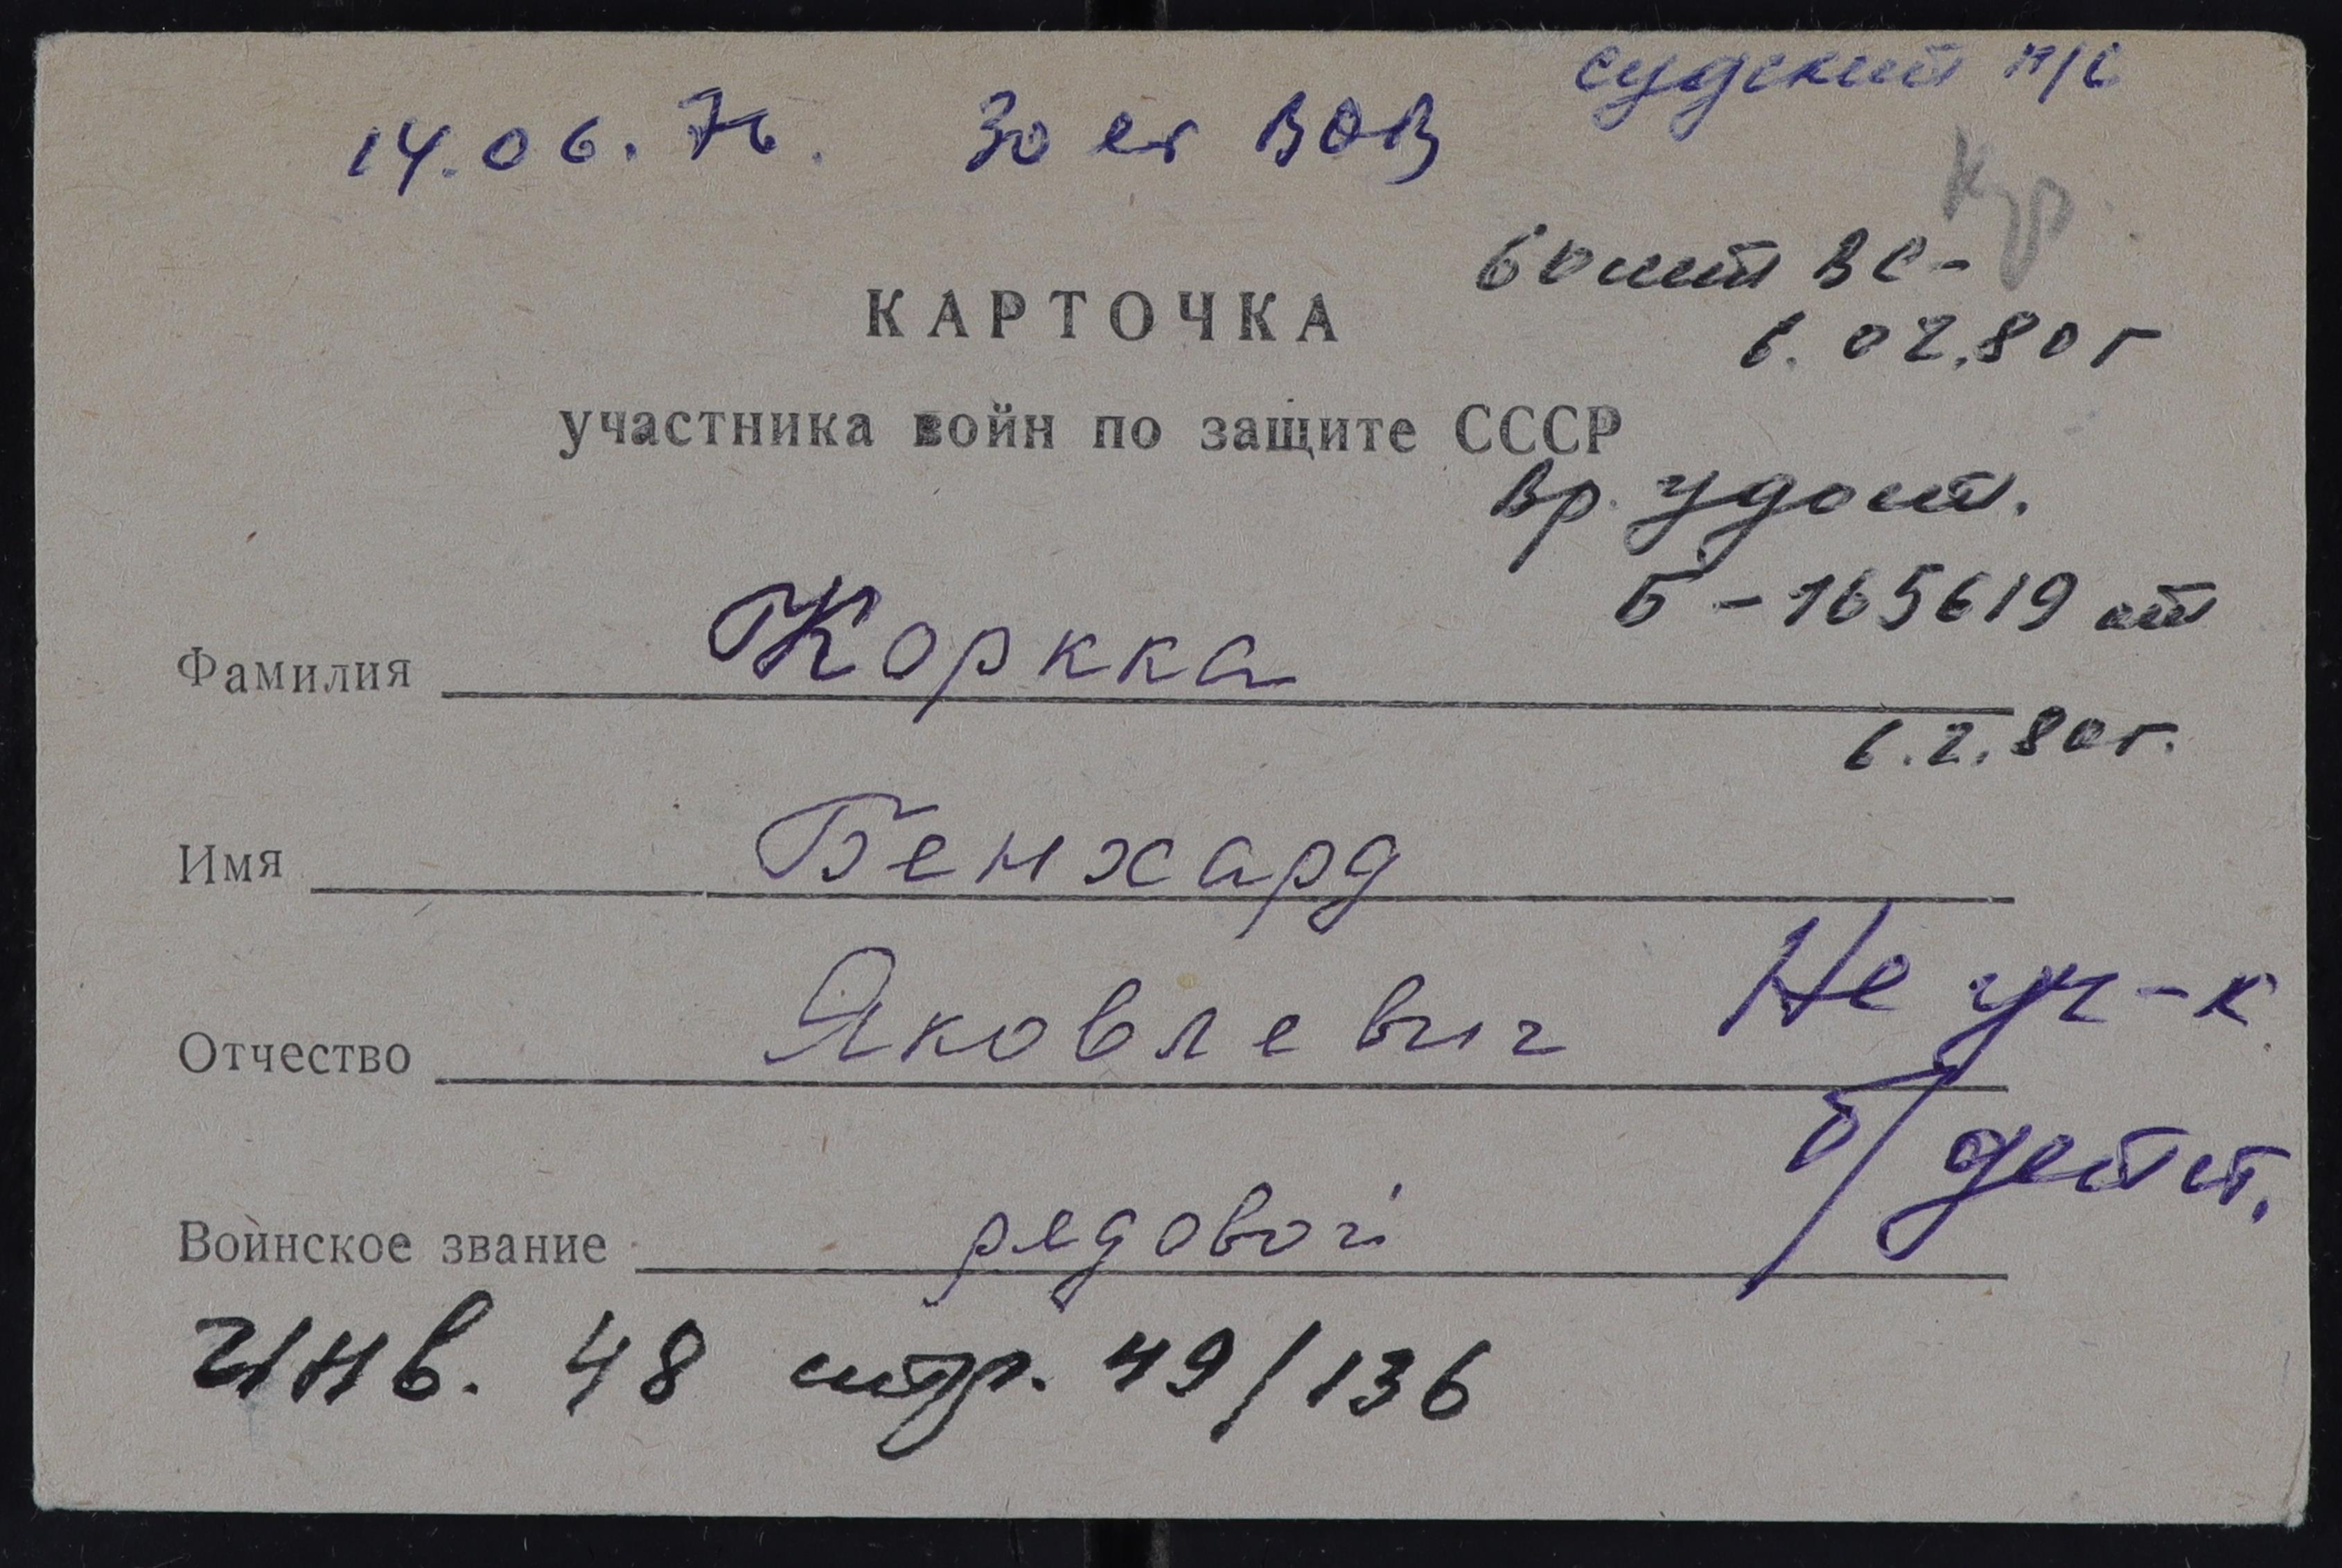 судский н/с
14.06.76. 30 ег ВОВ
Кр
60 лет ВС -
6.02.80 г
КАРТОЧКА
участника войн по защите СССР
Вр. удост.
Б - 165619 от
Фамилия Коркка
6.2.80 г.
Имя Бенхард
Отчество Яковлевич
Не уч-к
б/действ.
Воинское звание рядовой
инв. 48 стр. 49/136